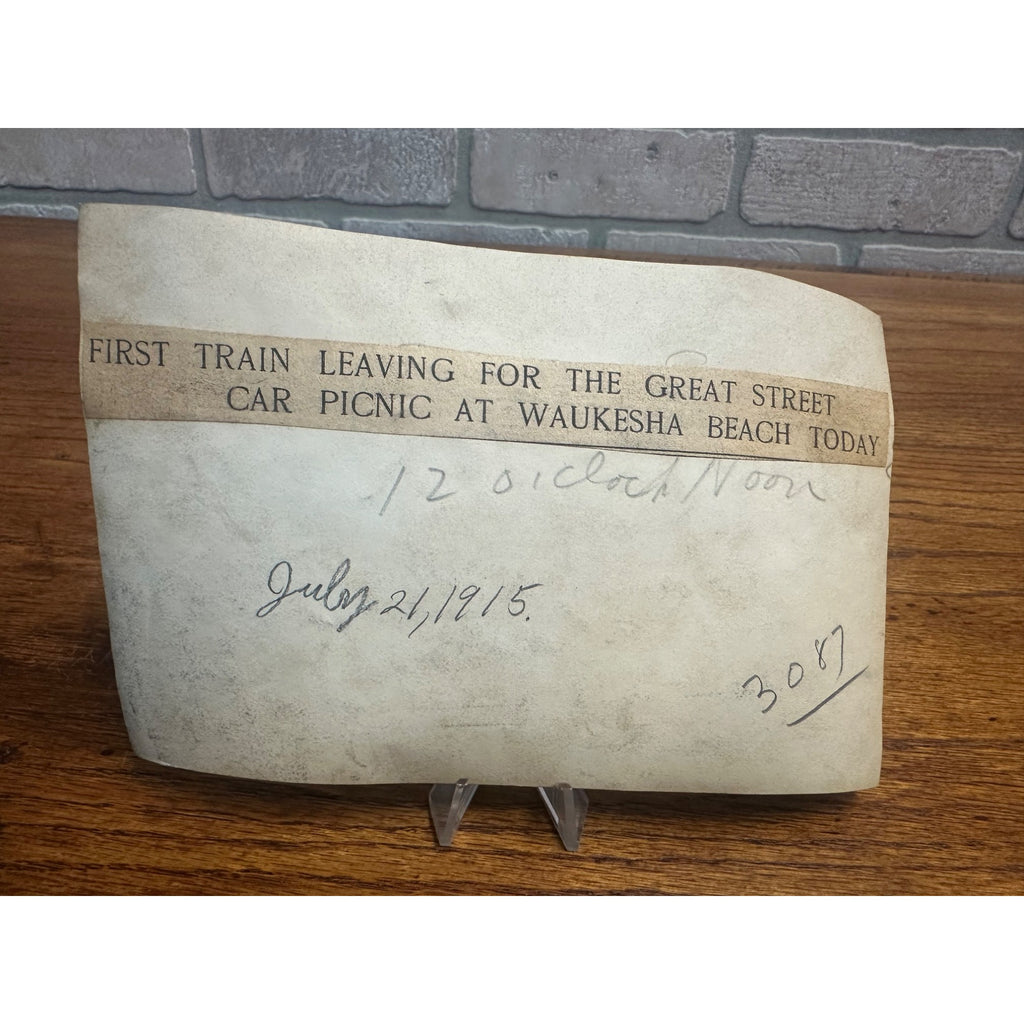 FIRST TRAIN LEAVING FOR THE GREAT STREET
CAR PICNIC AT WAUKESHA BEACH TODAY
12 o'clock Noon
July 21, 1915.
3087